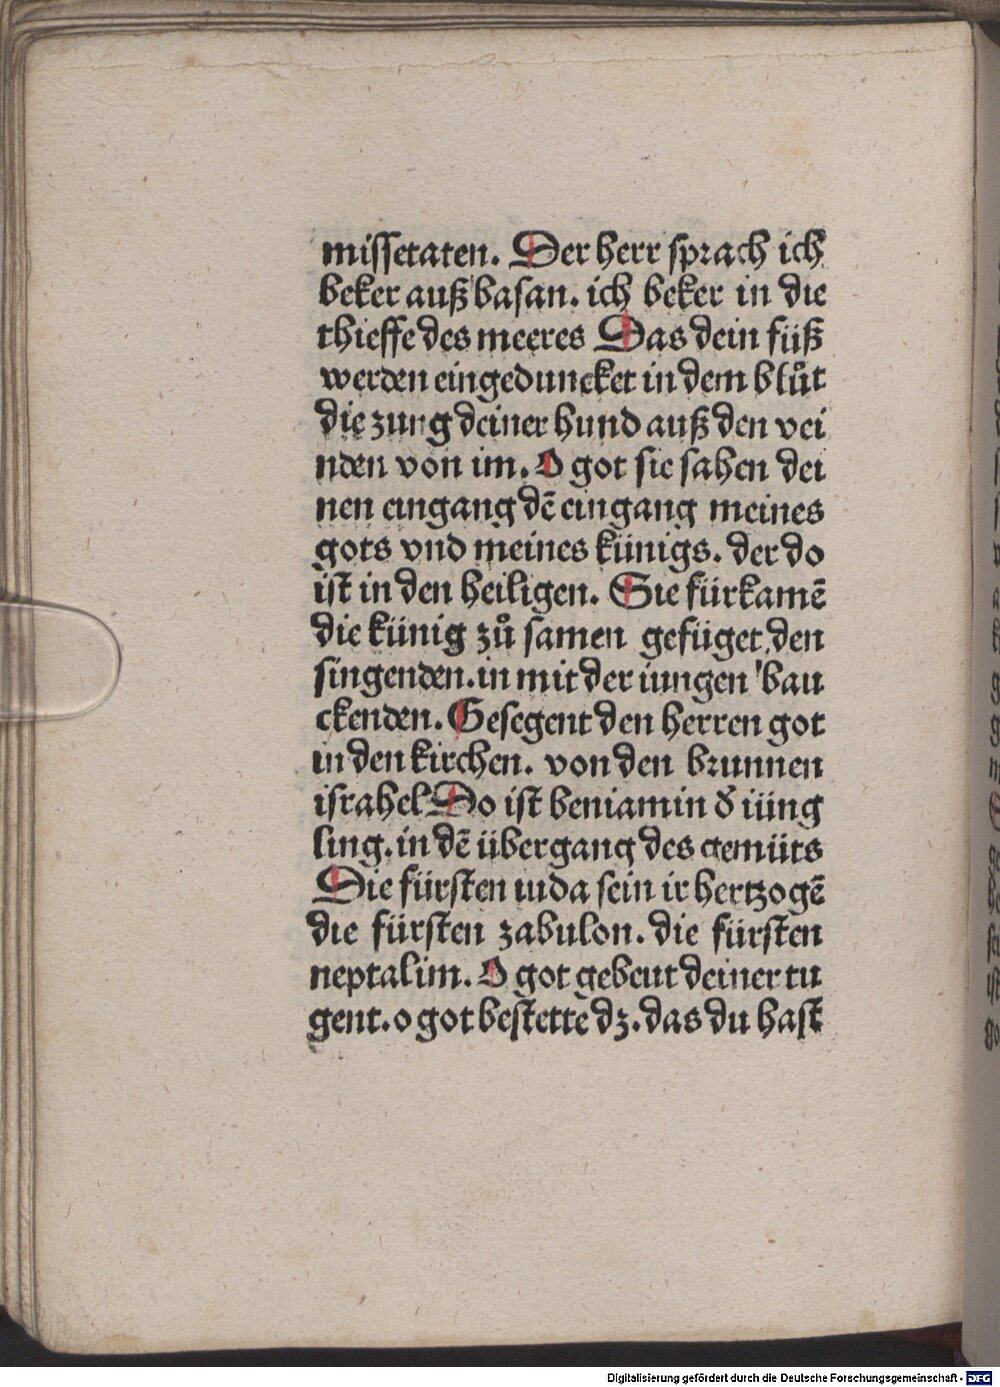 missetaten. Der herr sprach ich
beker auß basan. ich beker in die
thieffe des meeres Das dein füß
werden eingeduncket in dem blůt
die zung deiner hund auß den vei
nden von im. O got sie sahen dei
nen eingang dē eingang meines
gots vnd meines künigs. der do
ist in den heiligen. Sie fürkamē
die künig zů samen gefüget den
singenden. in mit der iungen bau
ckenden. Gesegent den herren got
in den kirchen. von den brunnen
israhel Do ist beniamin d̓ iüng
ling. in dē übergang des gemüts
Die fürsten iuda sein ir hertzogē
die fürsten zabulon. die fürsten
neptalim. O got gebeut deiner tu
gent. o got bestette dz. das du hast
Digitalisierung gefördert durch die Deutsche Forschungsgemeinschaft - DFG